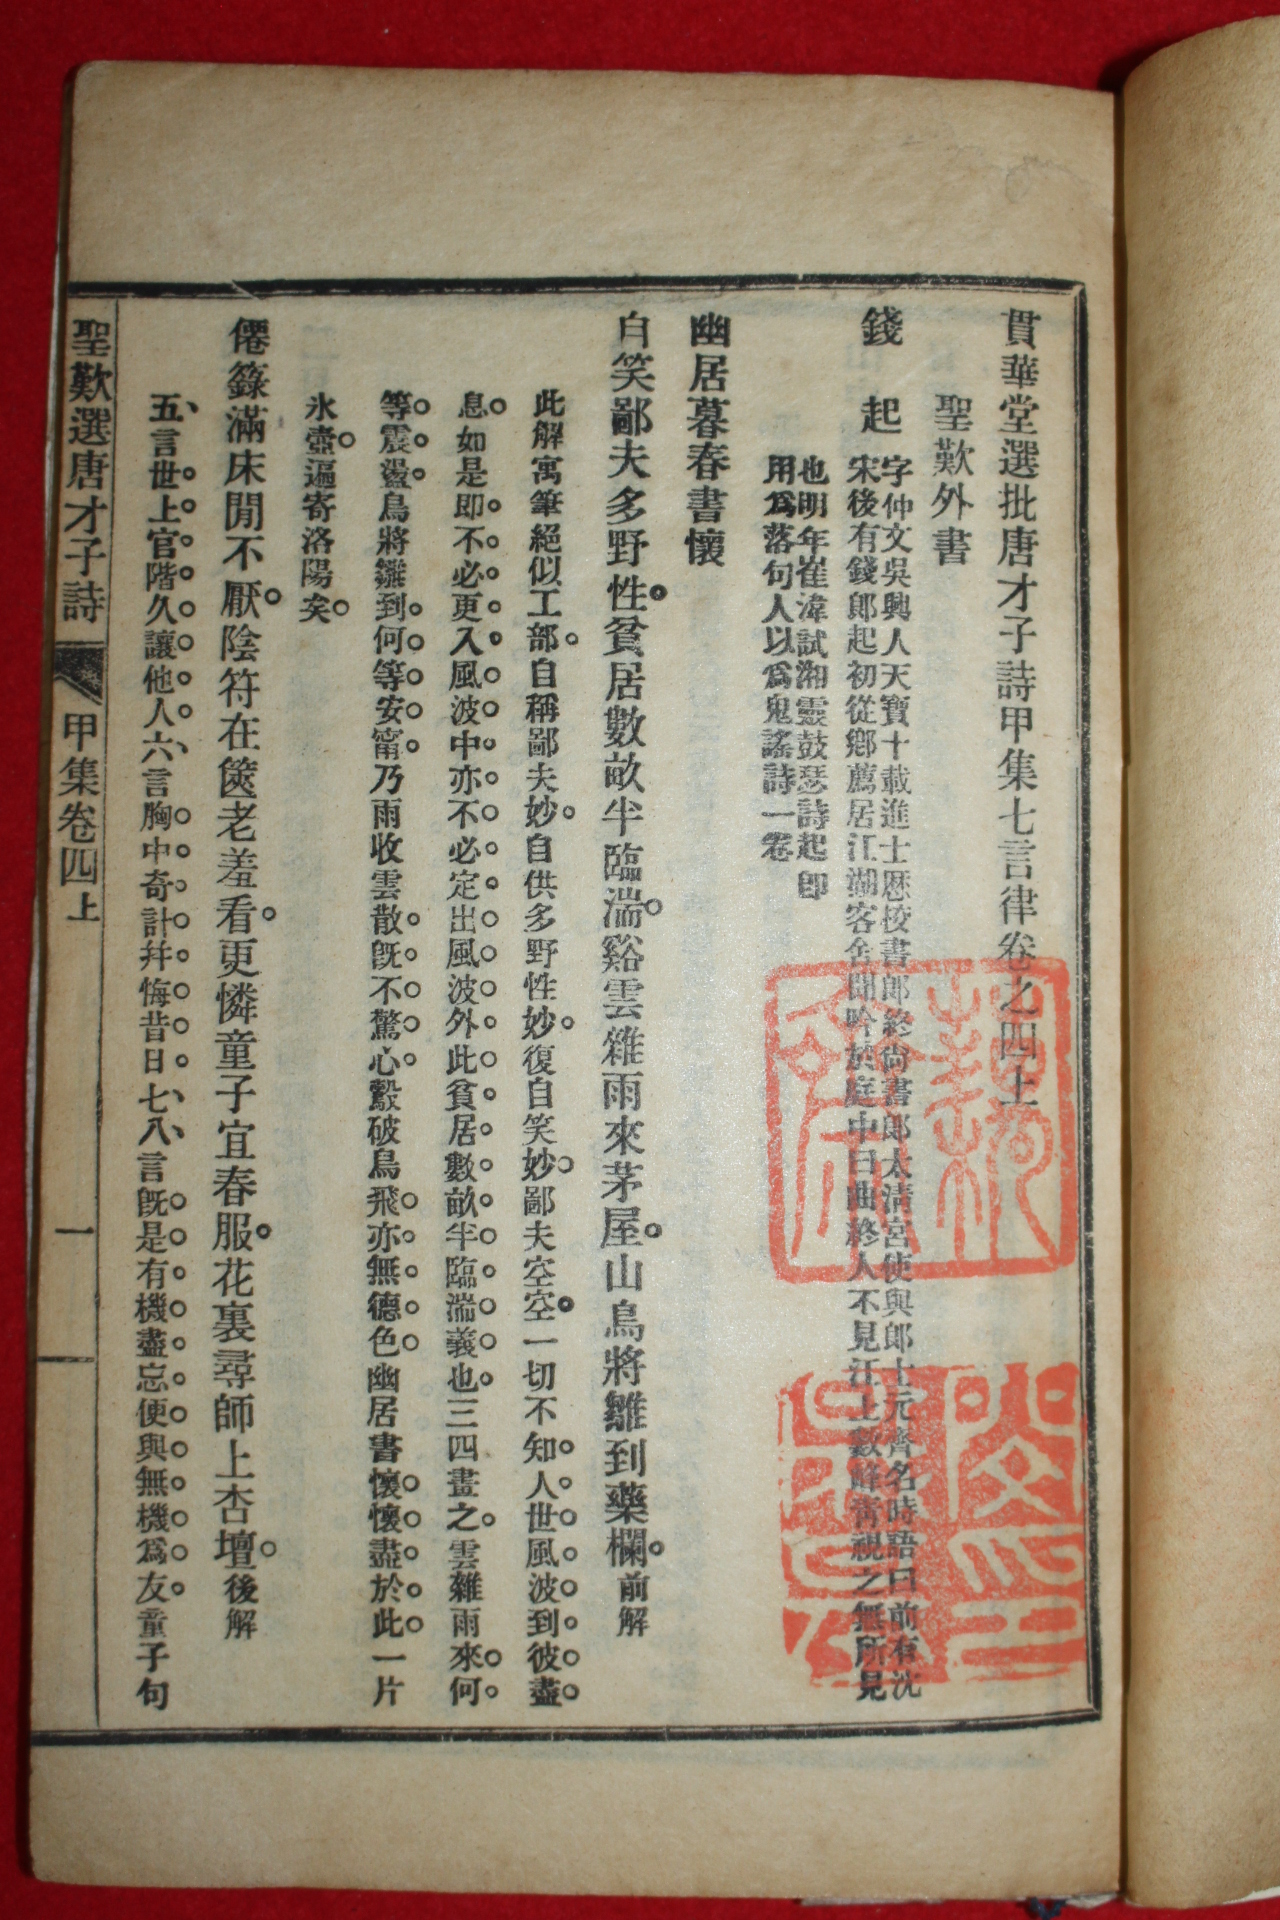 貫華堂選批唐才子詩甲集七言律卷之四上
聖歎外書
錢起
字仲文吳興人天寶十載進士歷校書郎終尚書郎太清宮使與郎士元齊名時語曰前有沈
宋後有錢郎起初從鄉薦居江湖客舍聞吟於庭中曰曲終人不見江上數峰靑視之無所見
也明年崔湋試湘靈鼓瑟詩起即
用爲落句人以爲鬼謠詩一卷
幽居暮春書懷
白笑鄙夫多野性貧居數畝半臨湍谿雲雜雨來茅屋山鳥將雛到藥欄前解
此解寓筆絕似工部自稱鄙夫妙自供多野性妙復自笑妙鄙夫空空一切不知人世風波到彼盡
息如是即不必更入風波中亦不必定出風波外此貧居數畝半臨湍義也三四畫之雲雜雨來何
等震盪鳥將雛到何等安甯乃雨收雲散旣不驚心鷇破鳥飛亦無德色幽居書懷懷盡於此一片
氷壺逼寄洛陽矣
僊籙滿床閒不厭陰符在篋老羞看更憐童子宜春服花裏尋師上杏壇後解
五言世上官階久讓他人六言胸中奇計幷悔昔日七八言旣是有機盡忘便與無機爲友童子句
聖歎選唐才子詩 甲集卷四上 一